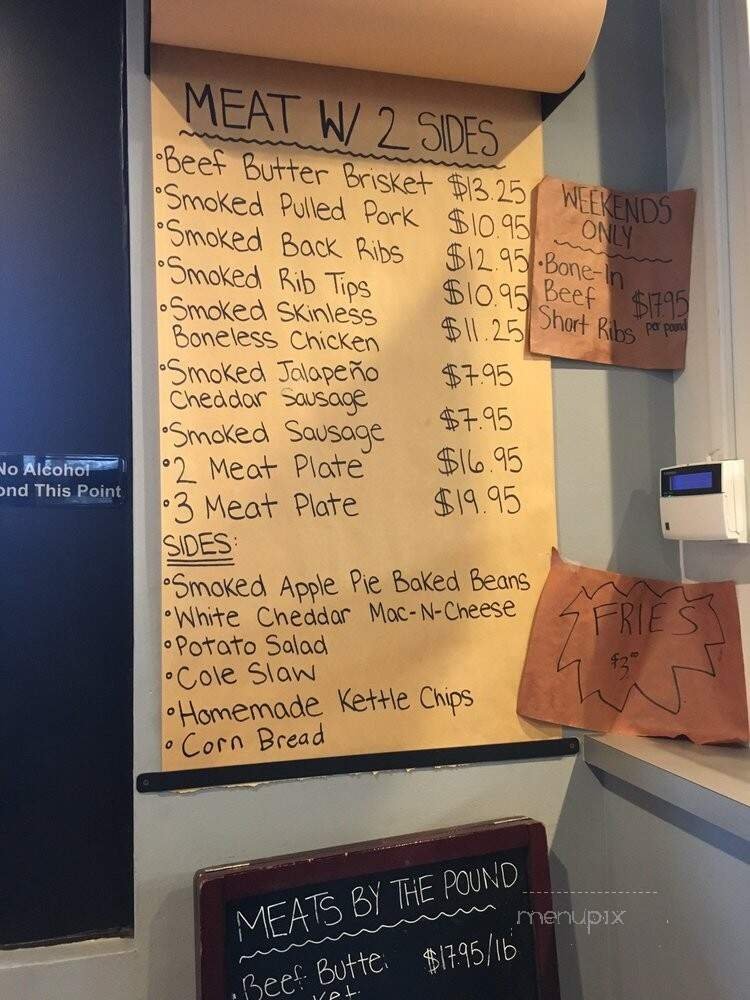 MEAT W/ 2 SIDES
•Beef Butter Brisket $13.25
•Smoked Pulled Pork $10.95
•Smoked Back Ribs $12.95
•Smoked Rib Tips $10.95
•Smoked Skinless
Boneless Chicken $11.25
•Smoked Jalapeño
Cheddar Sausage $7.95
•Smoked Sausage $7.95
•2 Meat Plate $16.95
•3 Meat Plate $19.95
SIDES:
•Smoked Apple Pie Baked Beans
•White Cheddar Mac-N-Cheese
•Potato Salad
•Cole Slaw
•Homemade Kettle Chips
•Corn Bread
WEEKENDS
ONLY
•Bone-In
Beef $17.95
Short Ribs per pound
No Alcohol
ond This Point
FRIES
$3.00
MEATS BY THE POUND
Beef Butte $17.95/lb
ket
menupix